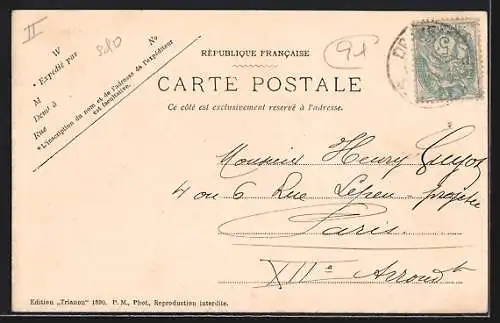 II
sdo
91
W
Nº
* Expédié par
M
Demt à
Rue
* L'inscription du nom et de l'adresse de l'expéditeur
est facultative.
RÉPUBLIQUE FRANÇAISE
CARTE POSTALE
Ce côté est exclusivement reservé à l'adresse.
Monsieur Henry Guyot
4 ou 6 Rue Lépeu - projetée
Paris.
XIIe Arrondt
Edition „Trianon" 1890. P. M., Phot, Reproduction interdite.